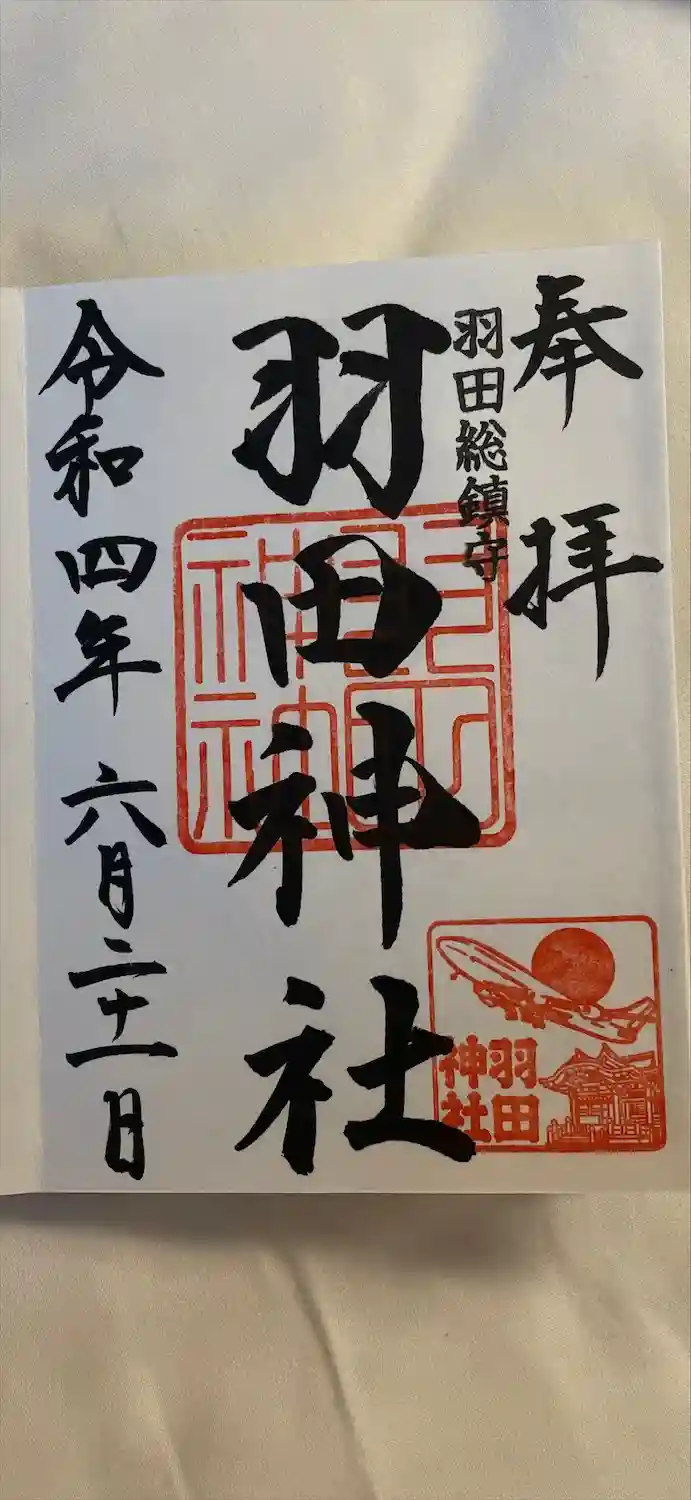 奉拝
羽田総鎮守
羽田神社
令和四年 六月二十一日
羽田
神社